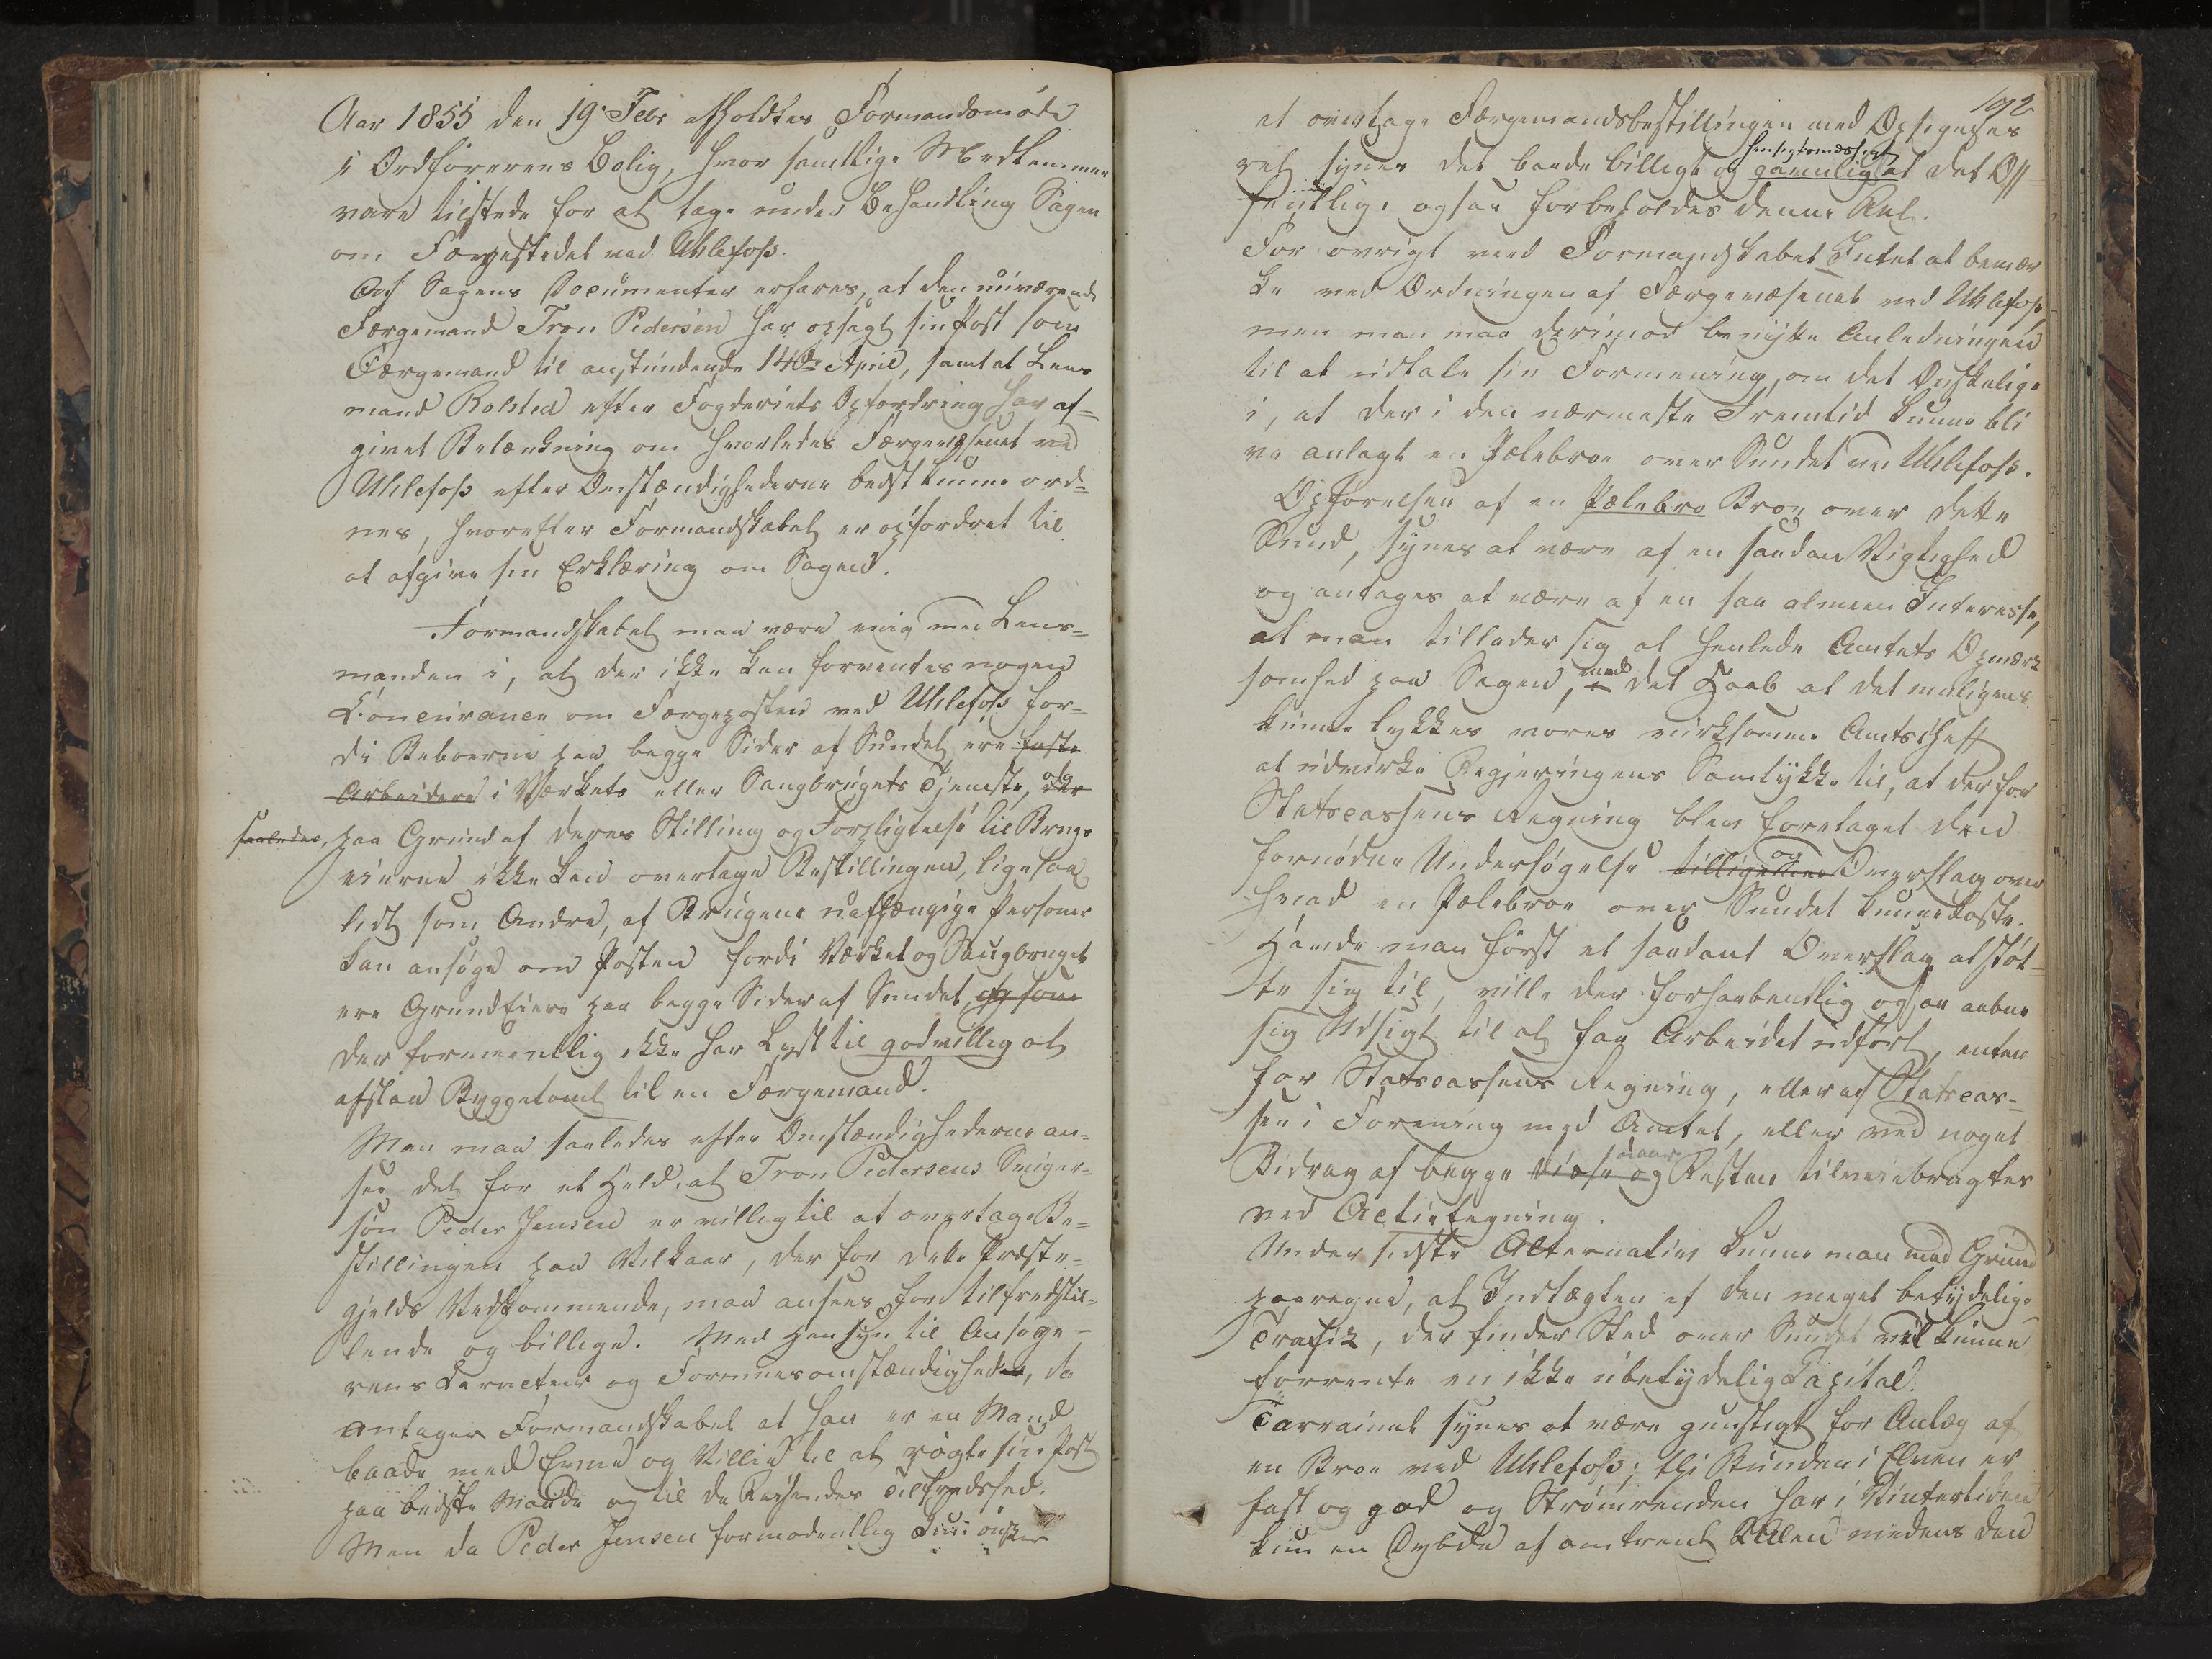 Aar 1855 den 19. Febr afholdtes Formandsmøde
i Ordførerens Bolig, hvor samtlige Medlemmer
vare tilstede for at tage under Behandling Sagen
om Færgestedet ved Uhlefoss.
Af Sagens Documenter erfares, at den nuværende
Færgemand Tron Pedersen har opsagt sin Post som
Færgemand til anstundende 14de April, samt at Lens
mand Rolsted efter Fogderiets Opfordring har af=
givet Betænkning om hvorledes Færgevæsenet ved
Uhlefoss efter Omstændighederne bedst kunne ord=
nes, hvorefter Formandskabet er opfordret til
at afgive sin Erklæring om Sagen.
Formandskabet maa være enig med Lens=
manden i, at der ikke kan forventes nogen
Concurance om Færgeposten ved Uhlefoss for=
di Beboerne paa begge Sider af Sundet ere faste
Arbeidere i Værkets eller Saugbrugets Tjeneste, og der
saaledes, paa Grund af deres Stilling og Forpligtelse til Brugs
eierne ikke kan overtage Bestillingen, ligesaa
lidt som Andre, af Brugene uafhængige Personer
kan ansøge om Posten fordi Værket og Saugbruget
ere Grundeiere paa begge Sider af Sundet, og som
der formeentlig ikke har Lyst til godvillig at
afstaa Byggetomt til en Færgemand.
Man maa saaledes efter Omstændighederne an=
see det for et Held, at Tron Pedersens Sviger=
søn Peder Jensen er villig til at overtage Be=
stillingen paa Vilkaar, der for dette Præste=
gjelds Vedkommende, maa ansees for tilfredstil=
lende og billige. Med Hensyn til Ansøge=
rens Caracteer og Formuesomstændigheder, da
antager Formandskabet at han er en Mand
baade med Evne og Villie til at røgte sin Post
paa bedste Maade og til de Reisendes Tilfredshed.
Men da Peder Jensen formodentlig kun ønsker
192.
at overtage Færgemandsbestillingen med Opsigelses
ret synes det baade billigt og gavnligt hensigtsmæssigt at det Off
fentlige ogsaa forbeholdes denne Ret.
For øvrigt veed Formandskabet Intet at bemær
ke ved Ordningen af Færgevæsenet ved Uhlefoss
men man maa derimod benytte Anledningen
til at udtale sin Formening, om det Ønskelige
i, at der i den nærmeste Fremtid kunne bli
ve anlagt en Pælebroe over Sundet ved Uhlefoss.
Opførelsen af en Pælebro Broe over dette
Sund, synes at være af en saadan Vigtighed
og antages at være af en saa almeen Interesse,
at man tillader sig at henlede Amtets Opmærk
somhed paa Sagen, med det Haab at det muligens
kunne lykkes vores virksomme Amtschef
at udvirke Regjeringens Samtykke til, at der for
Statscassens Regning blev foretaget den
fornødne Undersøgelse tilligemed og Overslag over
hvad en Pælebroe over Sundet kunne koste.
Havde man først et saadant Overslag at støt=
te sig til, ville der forhaabentlig ogsaa aabne
sig Udsigt til at faa Arbeidet udført, enten
for Statscassens Regning, eller af Statscas=
sen i Forening med Amtet, eller ved noget
Bidrag af begge disse og Resten tilveiebragtes
ved Actietegning.
Under sidste Alternativ kunne man med Grund
paaregne, at Indtægten af den meget betydelige
Trafik, der finder Sted over Sundet vil kunne
forrente en ikke ubetydelig Capital.
Tarrainet synes at være gunstigt for Anlæg af
en Broe ved Uhlefoss; thi Bunden i Elven er
fast og god og Strømrenden har i Vintertiden
kun en Dybde af omtrent Alen medens den